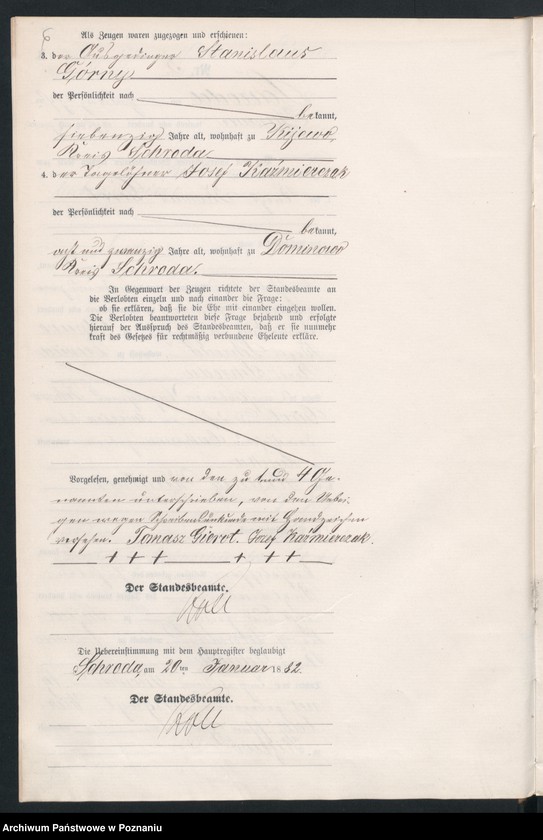 Als Zeugen waren zugezogen und erschienen:
3. der Ausgedinger Stanislaus
Górny
der Persönlichkeit nach
bekannt,
siebenzig Jahre alt, wohnhaft zu Kijewo,
Kreis Schroda
4. der Tagelöhner Josef Kaźmierczak
der Persönlichkeit nach
bekannt,
acht und zwanzig Jahre alt, wohnhaft zu Dominowo
Kreis Schroda.
In Gegenwart der Zeugen richtete der Standesbeamte an
die Verlobten einzeln und nach einander die Frage:
ob sie erklären, daß sie die Ehe mit einander eingehen wollen.
Die Verlobten beantworteten diese Frage bejahend und erfolgte
hierauf der Ausspruch des Standesbeamten, daß er sie nunmehr
kraft des Gesetzes für rechtmäßig verbundene Eheleute erkläre.
Vorgelesen, genehmigt und von den zu 1 und 4 Ge-
nannten unterschrieben, von den Uebri-
gen wegen Schreibensunkunde mit Handzeichen
versehen. Tomasz Gierot. Josef Kaźmierczak.
+ + + + + +
Der Standesbeamte.
Die Uebereinstimmung mit dem Hauptregister beglaubigt
Schroda, am 20ten Januar 1882.
Der Standesbeamte.
Archiwum Państwowe w Poznaniu